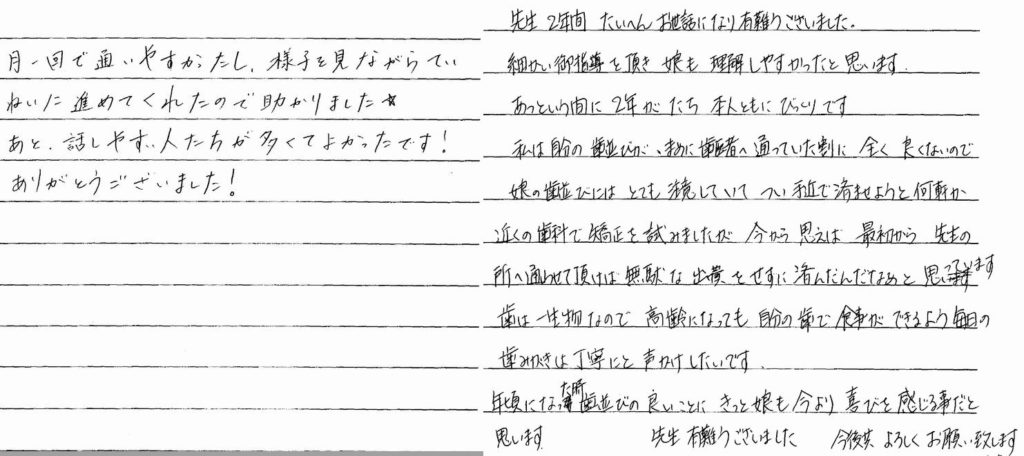 月一回で通いやすかったし、様子を見ながらてい
ねいに進めてくれたので助かりました☆
あと、話しやすい人たちが多くてよかったです!
ありがとうございました!
先生 2年間 たいへんお世話になり有難うございました。
細かい御指導を頂き 娘も 理解しやすかったと思います.
あっという間に 2年がたち 本人ともにびっくりです
私は自分の歯並びが、まめに歯医者へ通っていた割に 全く 良くないので
娘の歯並びには とても 注意していて つい手近で済ませようと何軒か
近くの歯科で矯正を試みましたが 今から 思えば 最初から 先生の
所へ通わせて頂けば 無駄な 出費をせずに 済んだんだなあと 思っています
歯は一生物なので 高齢になっても 自分の歯で 食事ができるよう毎日の
歯みがきは丁寧にと 声かけしたいです.
年頃になった時 歯並びの良いことに きっと娘も 今より 喜びを感じる事だと
思います 先生 有難うございました 今後共 よろしくお願い致します